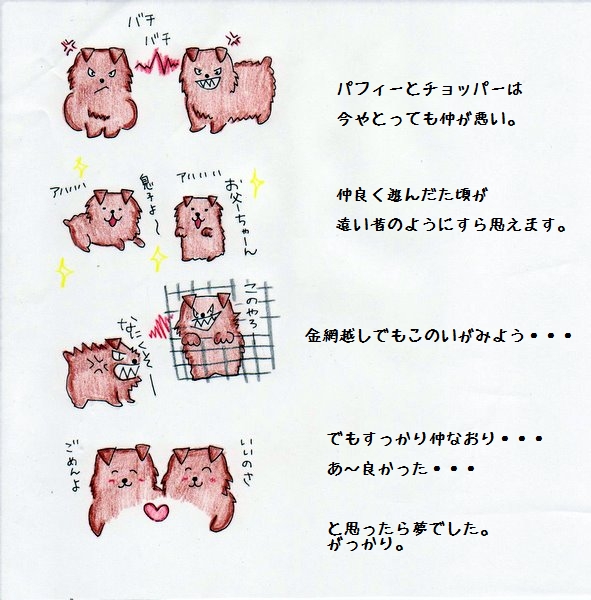 バチ
バチ
パフィーとチョッパーは
今やとっても仲が悪い。
アハハハ
息子よ～
アハハハ
お父ーちゃーん
仲良く遊んだた頃が
遠い昔のようにすら思えます。
なにくそー
このやろ
金網越しでもこのいがみよう・・・
ごめんよ
いいのさ
でもすっかり仲なおり・・・
あ～良かった・・・
と思ったら夢でした。
がっかり。